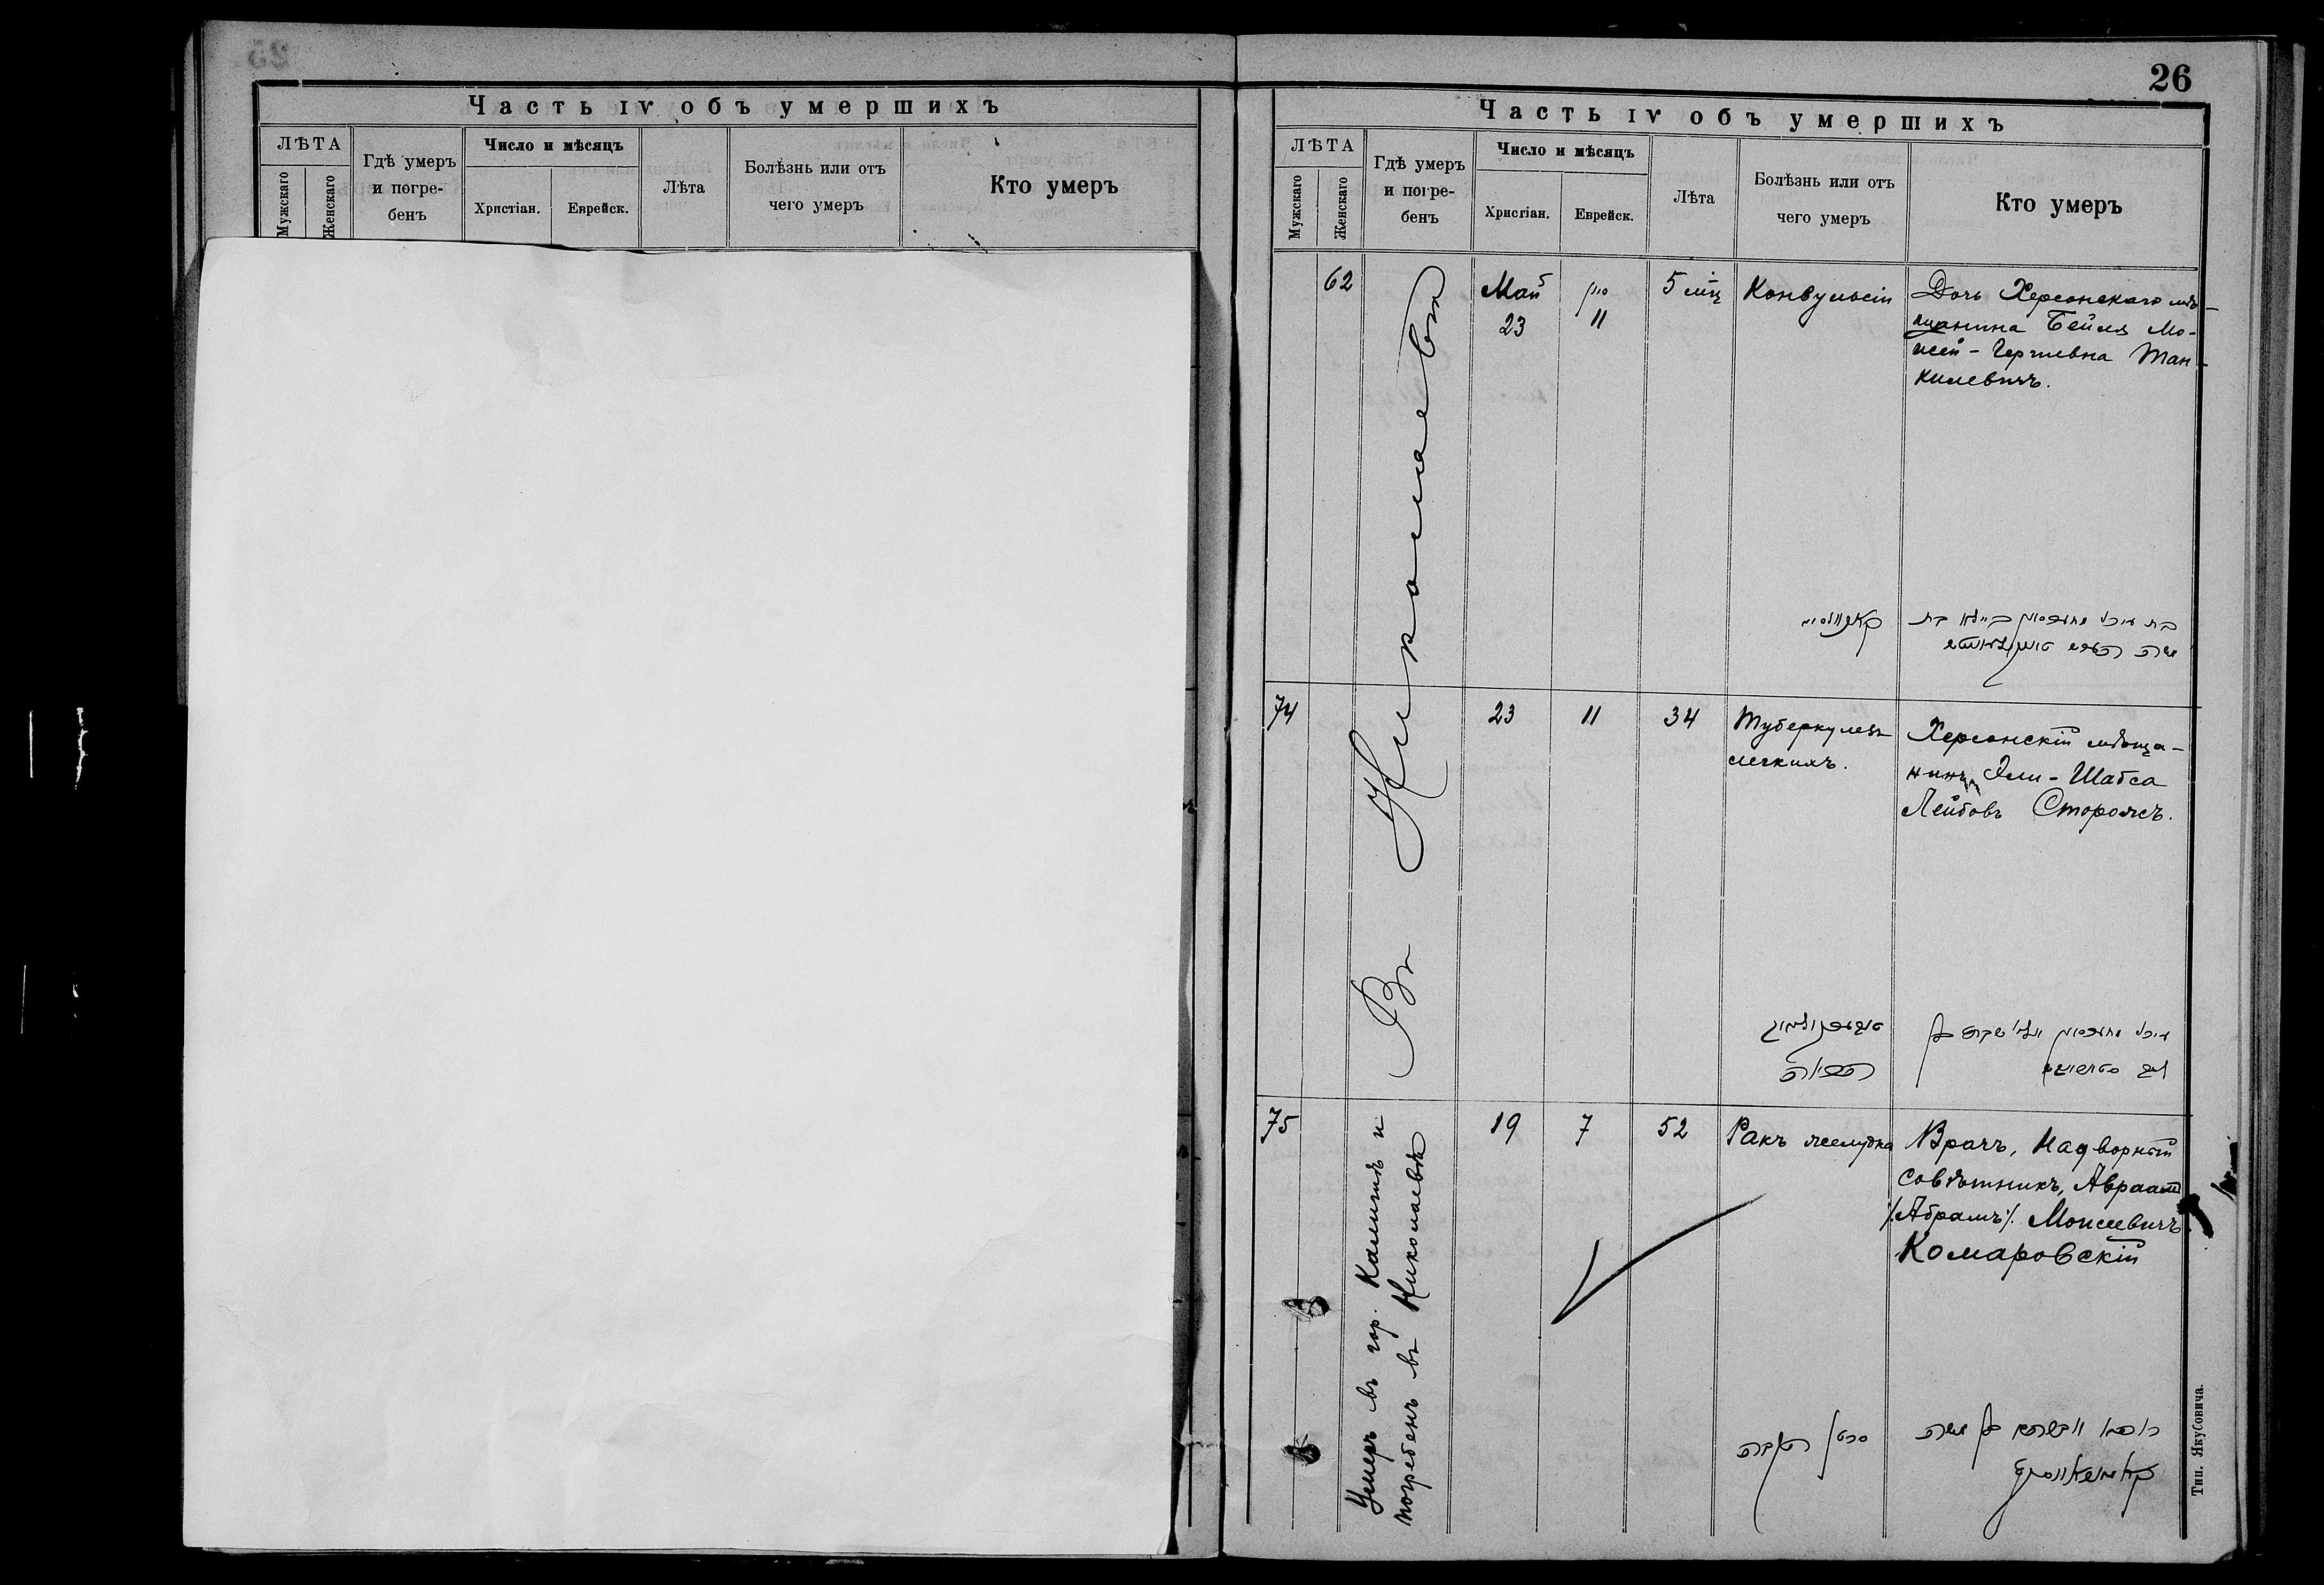 Часть IV объ умершихъ
ЛѢТА
Мужскаго
Женскаго
Гдѣ умеръ
и погре-
бенъ
Число и мѣсяцъ
Христіан.
Еврейск.
Лѣта
Болѣзнь или отъ
чего умеръ
Кто умеръ
26
Часть IV объ умершихъ
ЛѢТА
Мужскаго
Женскаго
Гдѣ умеръ
и погре-
бенъ
Число и мѣсяцъ
Христіан.
Еврейск.
Лѣта
Болѣзнь или отъ
чего умеръ
Кто умеръ
62
Въ Николаевѣ
Май
23
סיון
11
5 мц
Конвульсіи
Дочь Херсонскаго мѣ-
щанина Бейля Мо-
исей-Гершевна Тан-
килевичъ.
74
23
11
34
Туберкулезъ
легкихъ.
Херсонскій мѣща-
нинъ Эли-Шабса
Лейбовъ Сторожъ.
75
Умеръ въ гор. и
погребенъ въ Николаевѣ
19
7
52
Ракъ желудка
Врачъ, Надворный
Совѣтникъ, Авраамъ
/.Абрамъ/. Моисеевичъ
Комаровскій
סרטן הקבה
משה
Тип. Якубовича.